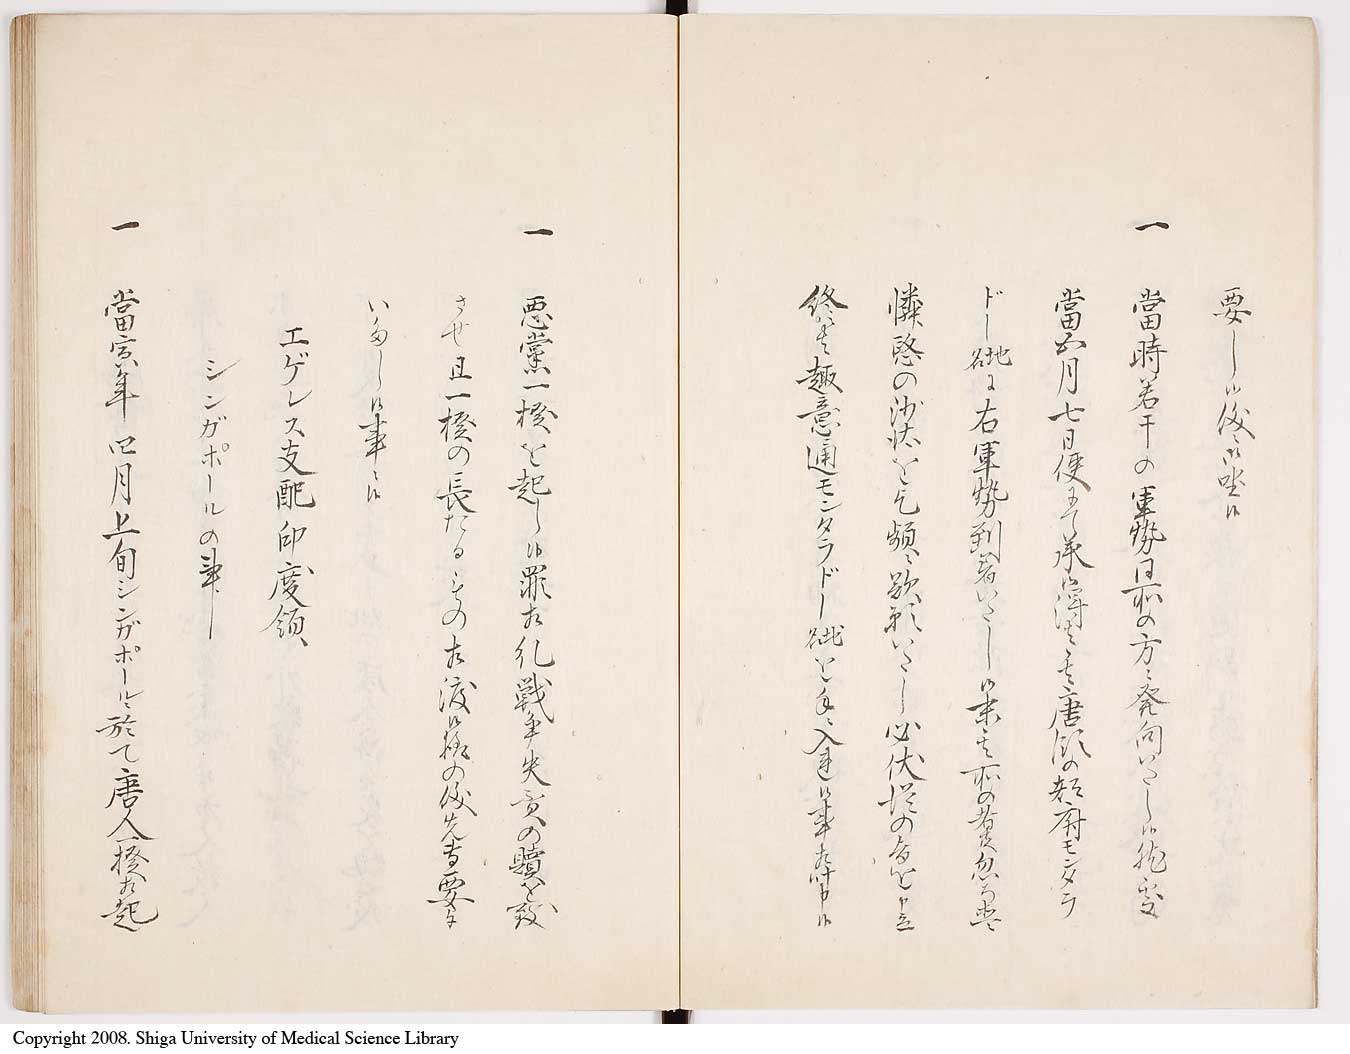 要し候儀ニ御座候
一 當時若干の軍勢同所の方ニ発向いたし候
當五月七日便ニて承候得者唐領の都府モンタラ
ドー地ニ右軍勢到着いたし候
憐愍の沙汰を乞頻ニ歎願いたし必伏従の旨を申立
終ニ其趣意通モンタラドー地を手ニ入連候事相叶申候
一 悪黨一揆を起し候罪相礼戦争失費の贖を致
させ且一揆の長たるもの相渡候様の儀先者要ニ
いたし候事ニ候
エゲレス支配印度領
シンガポールの事
一 當寅年四月上旬シンガポールニ於て唐人一揆相起
Copyright 2008. Shiga University of Medical Science Library